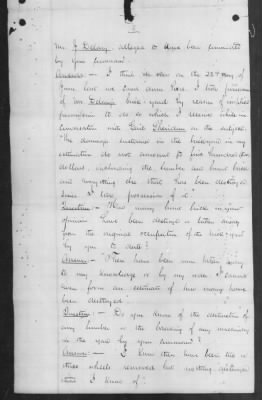 Mr. J. Delany alleges to have been committed
by your command.
Answer:- I think it was on the 22nd day of
June last we came here. I took possession
of Mr. Delany's brick yard by reason of implied
permission to do so which I received while in
conversation with Genl. Sheridan on the subject.
The damage sustained in the brickyard in my
estimation do not amount to five hundred
dollars, embracing the lumber and burnt brick
and everything else that has been destroyed
since I took possession of it.
Question:- How many burnt brick in your
opinion have been destroyed or taken away
from the original occupation of the brick-yard
by you to date?
Answer:- There have been none taken away
to my knowledge or by my order. I cannot
even form an estimate of how many have
been destroyed.
Question:- Do you know of the destruction of
any lumber or the breaking of any machinery
in the yard by your command?
Answer:- I know there have been two or
three wheels removed but nothing destroyed
that I know of.